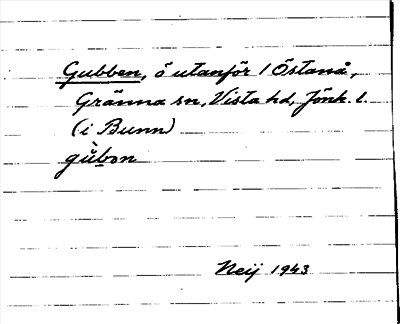 Gubben, ö utanför 1 Östanå,
Gränna sn, Vista hd, Jönk. l.
(i Bunn)
gùbən
Neij 1943